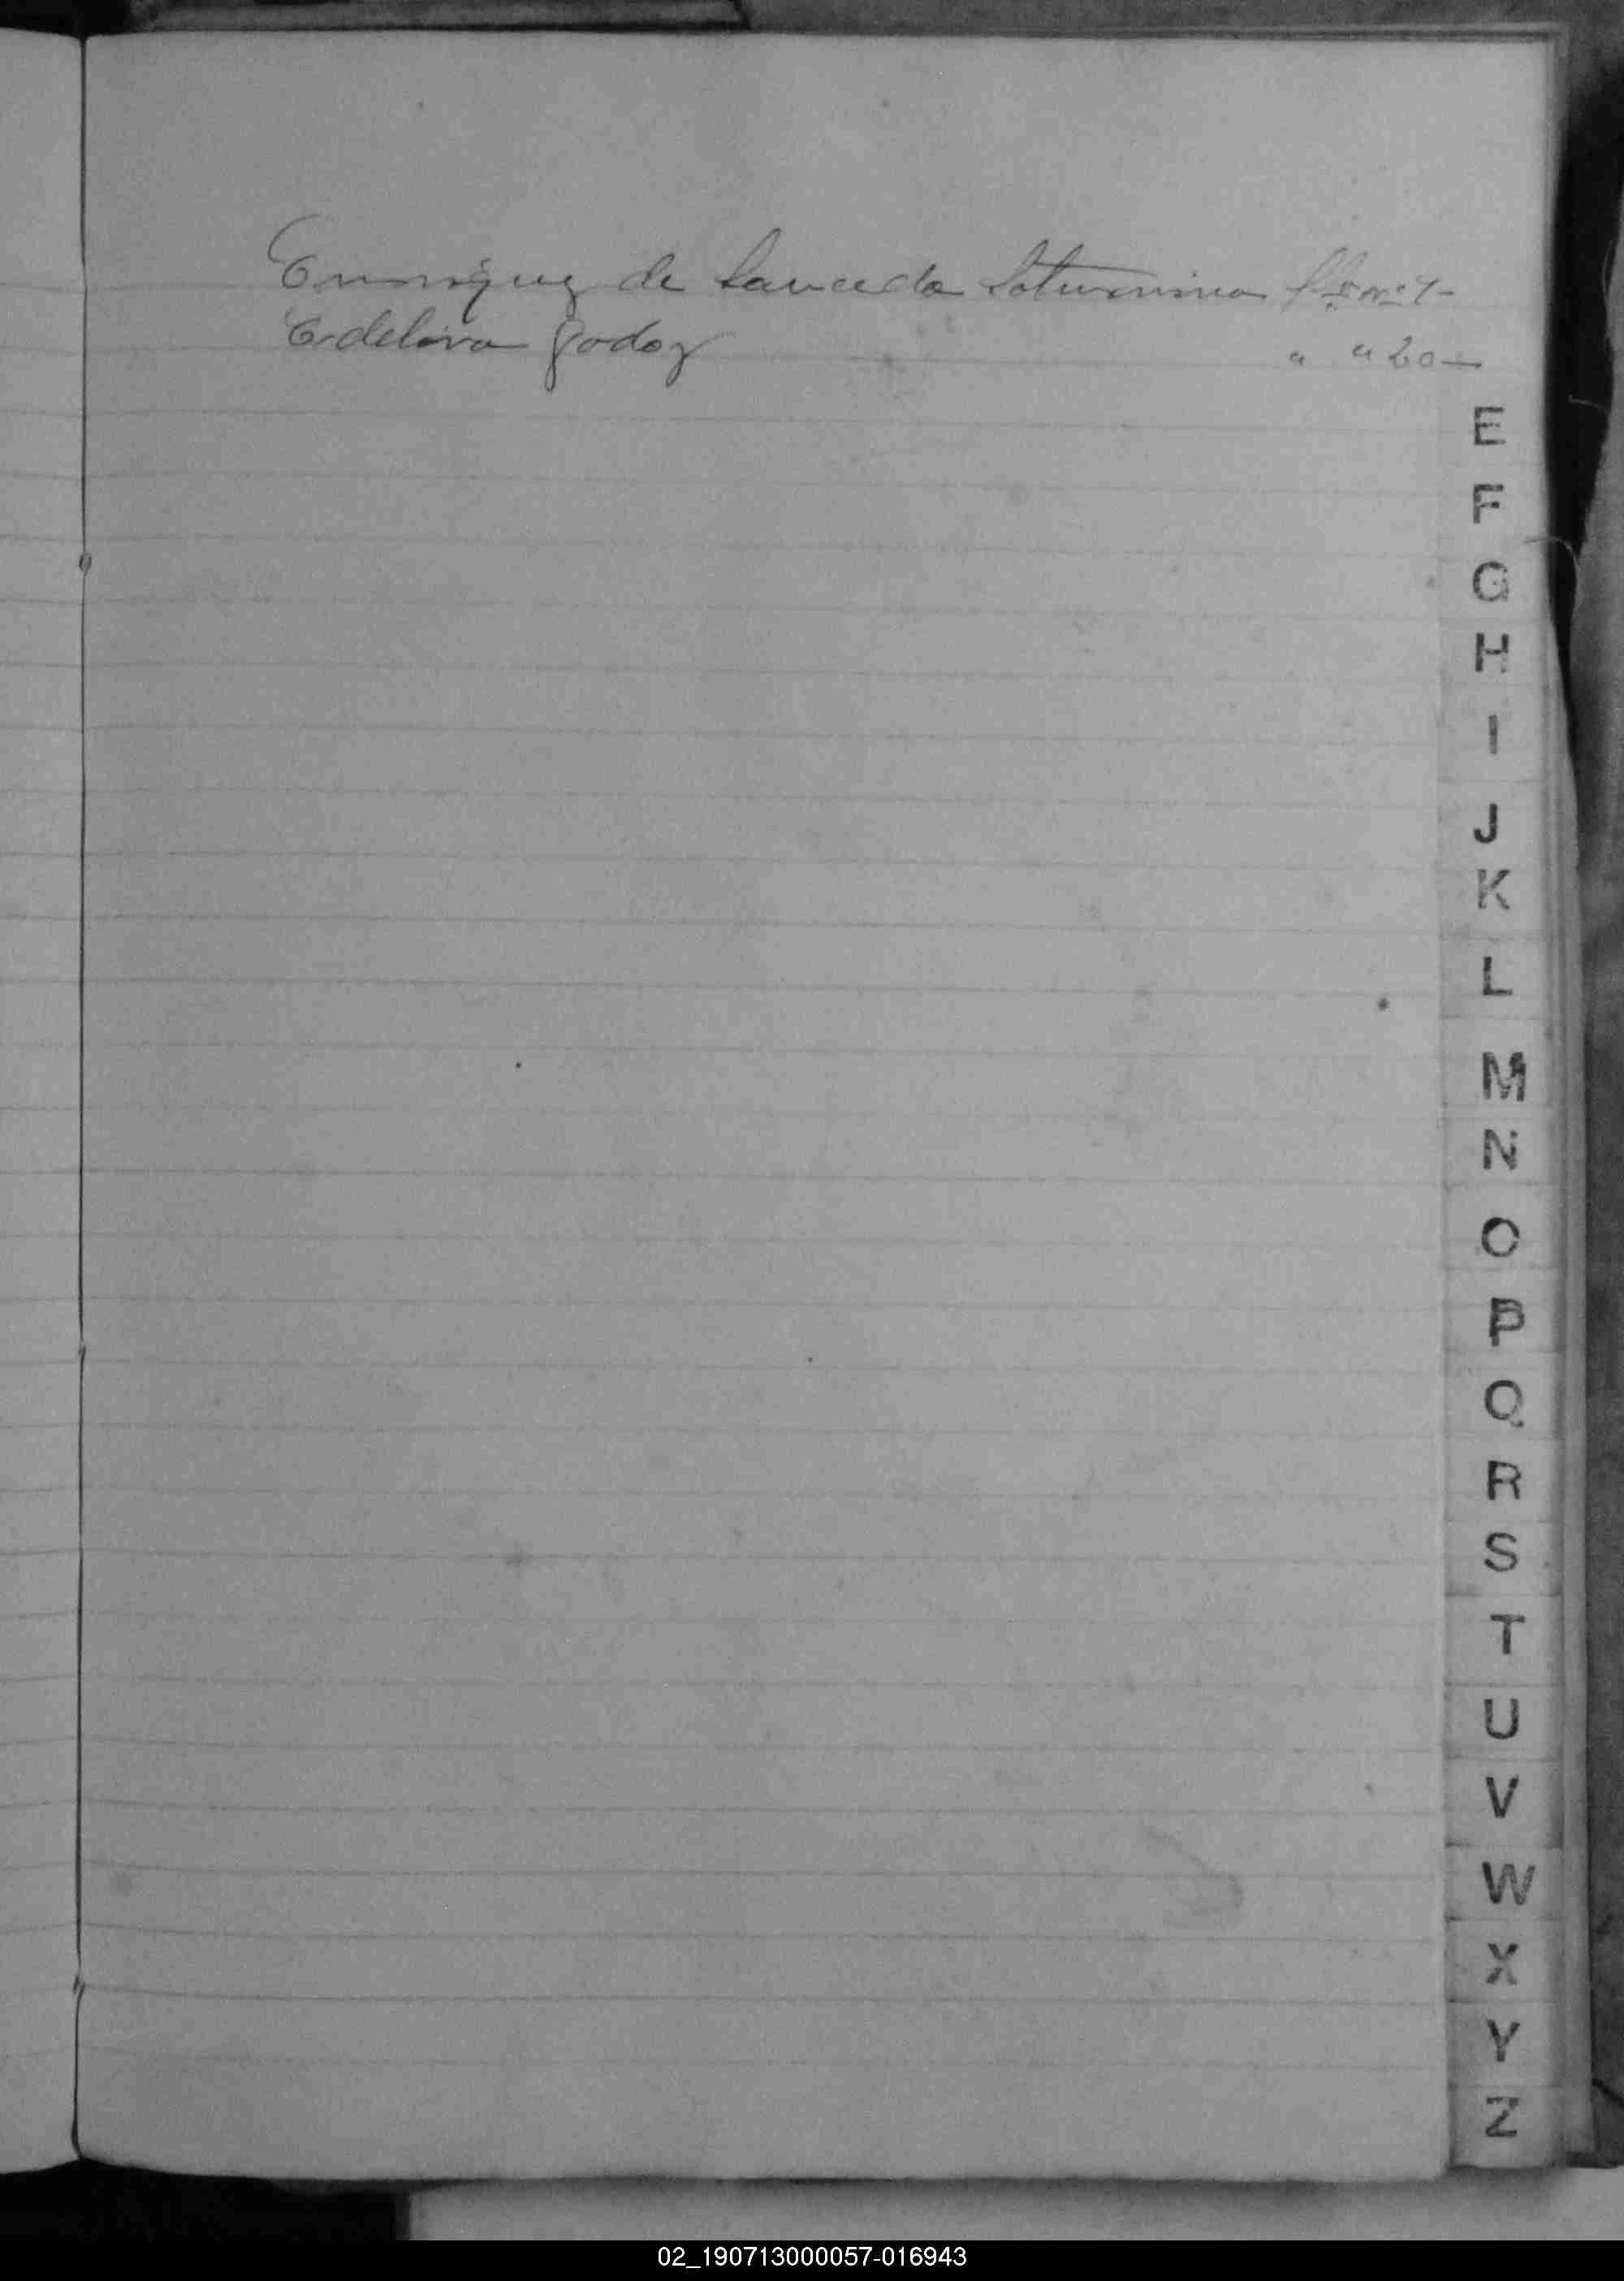 Enrriquez de Sauceda Saturnina
Edelira Godoy " " 20—
E
F
G
H
I
J
K
L
M
N
O
P
Q
R
S
T
U
V
W
X
Y
Z
02_190713000057-016943